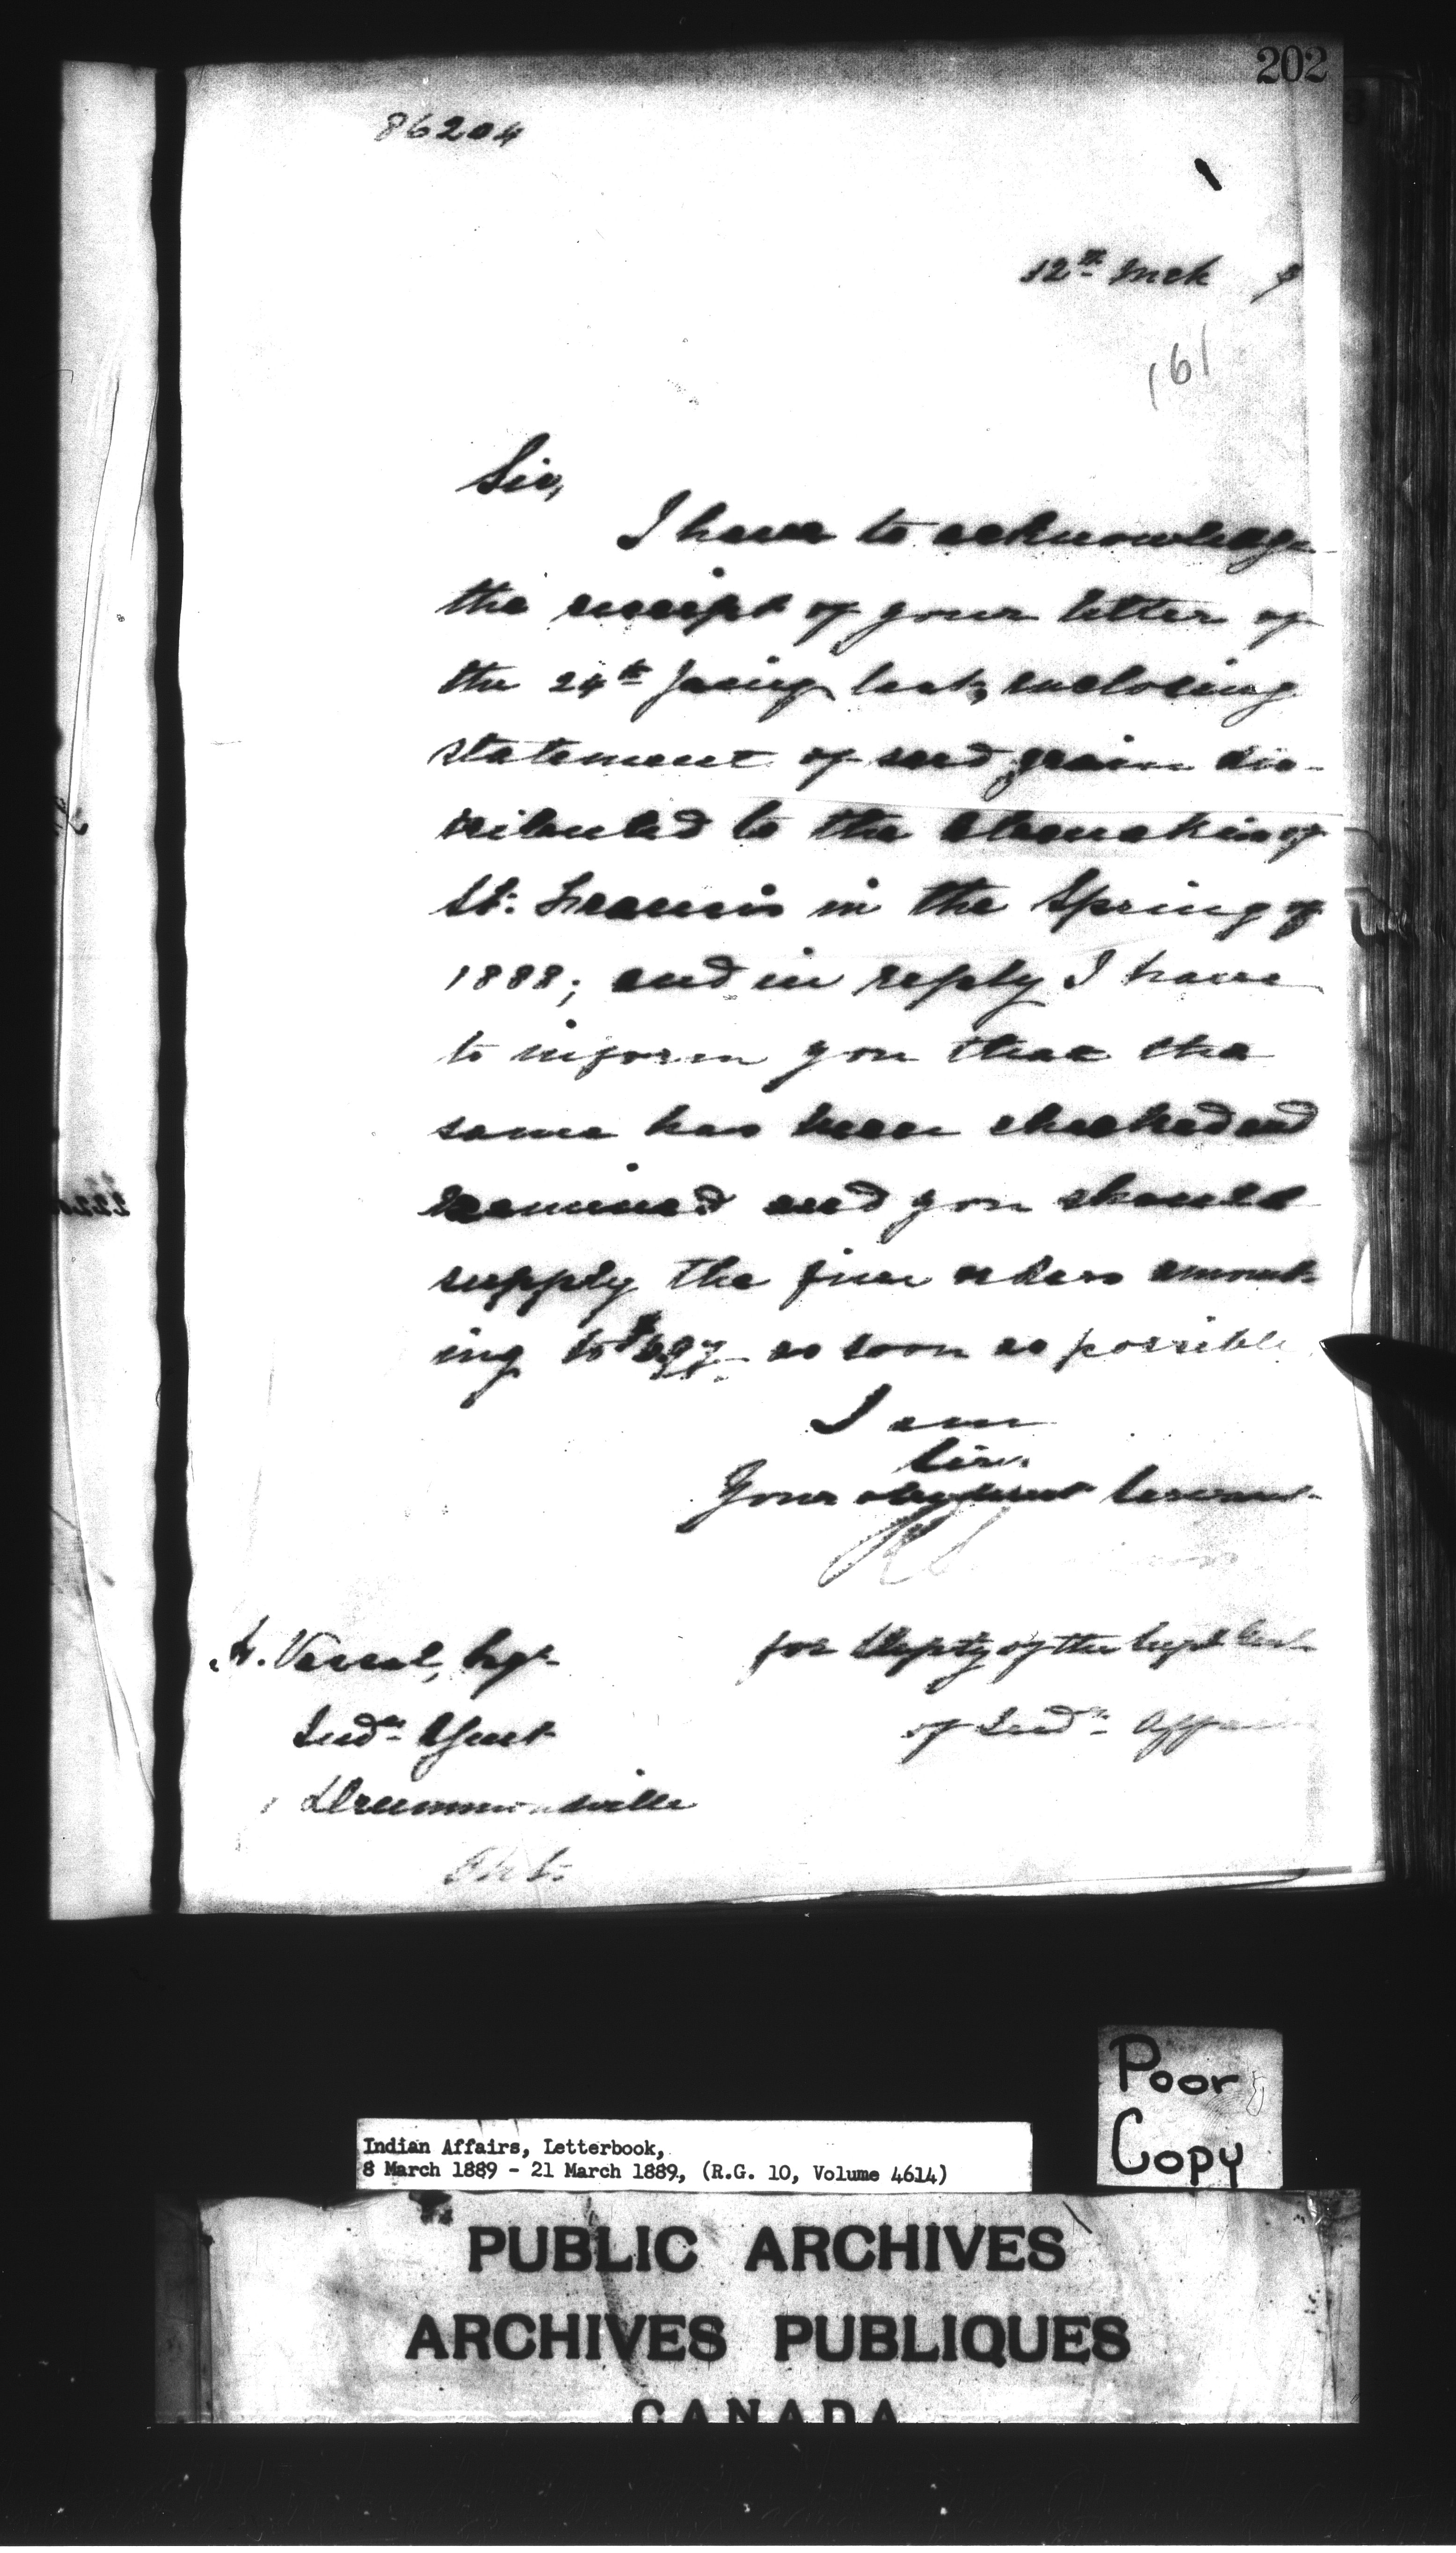 202
86204
12th Mch 9
161
Sir,
I have to acknowledge
the receipt of your letter of
the 24th Jany last, enclosing
statement of seed grain dis-
tributed to the Abenakis of
St. Francis in the Spring of
1888; and in reply I have
to inform you that the
same has been checked and
and you should
supply the amount-
ing to as soon as possible.
I am
Sir,
Your obedient Servant
for Deputy of the Supt Genl
of Indn Affairs
Vassal, Esqr
Indn Agent
Drummondville
Poor
Copy
Indian Affairs, Letterbook,
8 March 1889 - 21 March 1889, (R.G. 10, Volume 4614)
PUBLIC ARCHIVES
ARCHIVES PUBLIQUES
CANADA